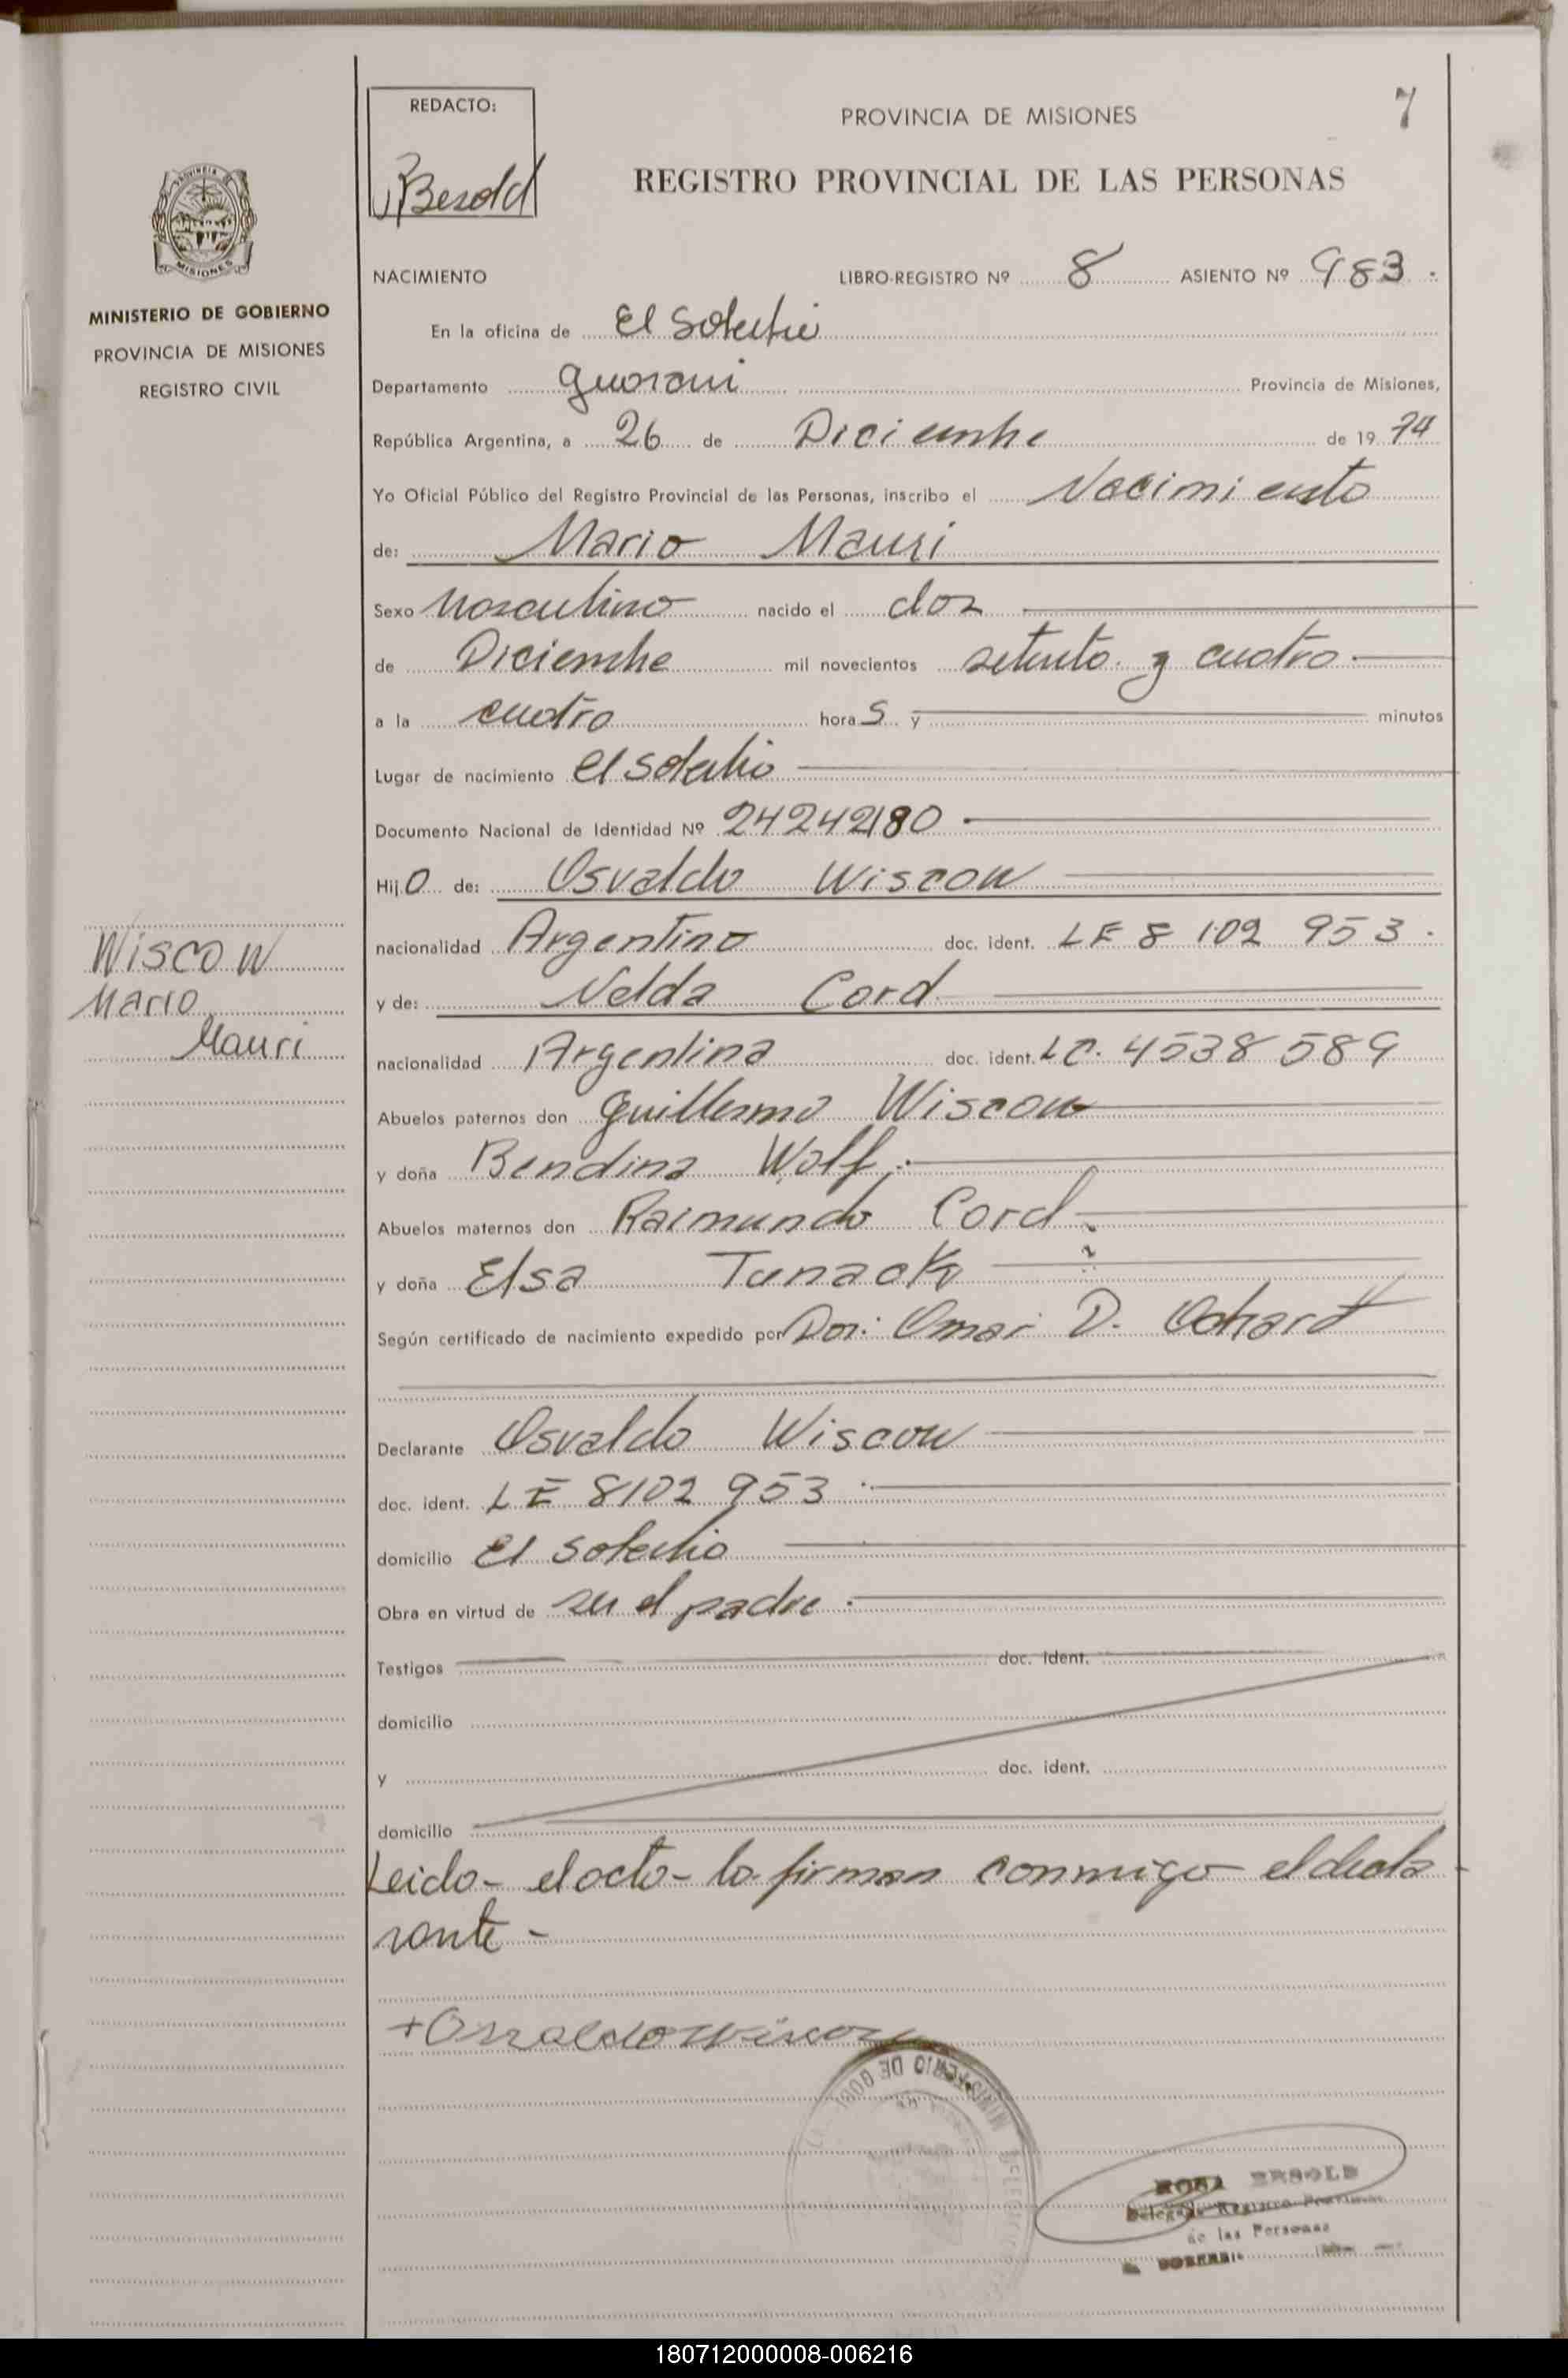 7
REDACTO:
Besold
PROVINCIA DE MISIONES
REGISTRO PROVINCIAL DE LAS PERSONAS
MISIONES
MINISTERIO DE GOBIERNO
PROVINCIA DE MISIONES
REGISTRO CIVIL
NACIMIENTO LIBRO-REGISTRO Nº 8 ASIENTO Nº 983
En la oficina de El Soberbio
Departamento Guarani Provincia de Misiones,
República Argentina, a 26 de Diciembre de 19 74
Yo Oficial Público del Registro Provincial de las Personas, inscribo el Nacimiento
de: Mario Mauri
Sexo Masculino nacido el dos
de Diciembre mil novecientos setenta y cuatro
a la cuatro hora s y minutos
Lugar de nacimiento El Soberbio
Documento Nacional de Identidad Nº 24242180
Hij o de: Osvaldo Wiscow
nacionalidad Argentino doc. ident. LE 8 102 953
y de: Nelda Cord
nacionalidad Argentina doc. ident. LC. 4538 589
Wiscow
Mario
Mauri
Abuelos paternos don Guillermo Wiscow
y doña Bendina Wolf
Abuelos maternos don Raimundo Cord
y doña Elsa Tunack
Según certificado de nacimiento expedido por Dor: Omar D.
Declarante Osvaldo Wiscow
doc. ident. LE 8102 953
domicilio El Soberbio
Obra en virtud de ser el padre
Testigos doc. ident.
domicilio
y doc. ident.
domicilio
Leida el acta la firman conmigo el decla
rante
+ Osvaldo Wiscow
MINISTERIO DE GOBI
ROSA BESOLD
Delegada Registro Provincial
de las Personas
180712000008-006216